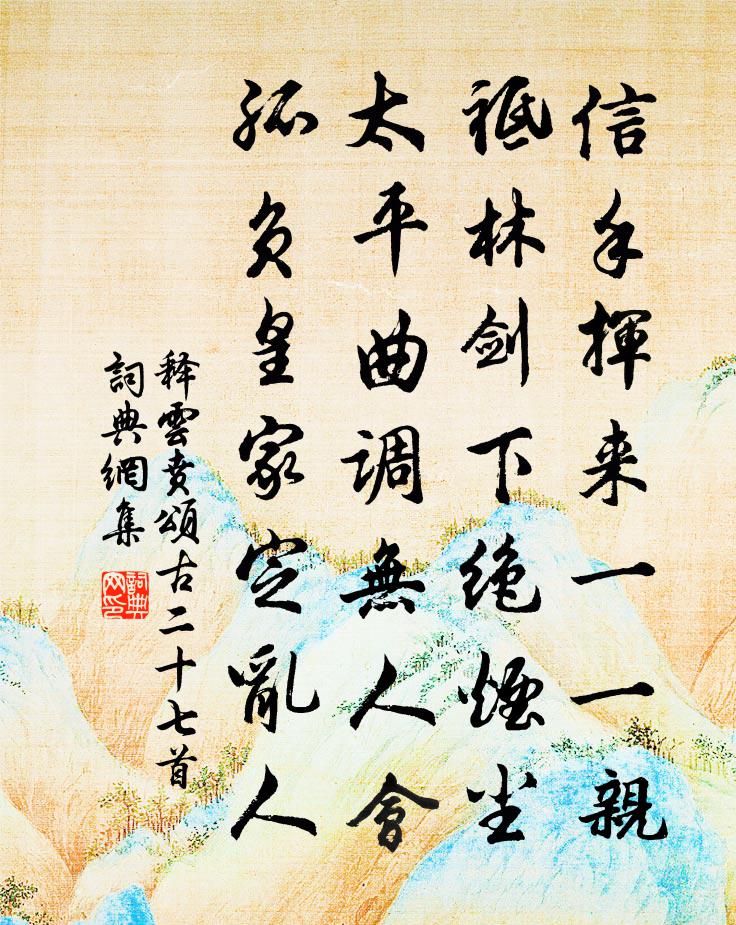 信手揮来一一親
祗林劍下绝煙尘
太平曲调無人會
孤负皇家定亂人
释雲賁頌古二十七首
詞典網集
詞典網印